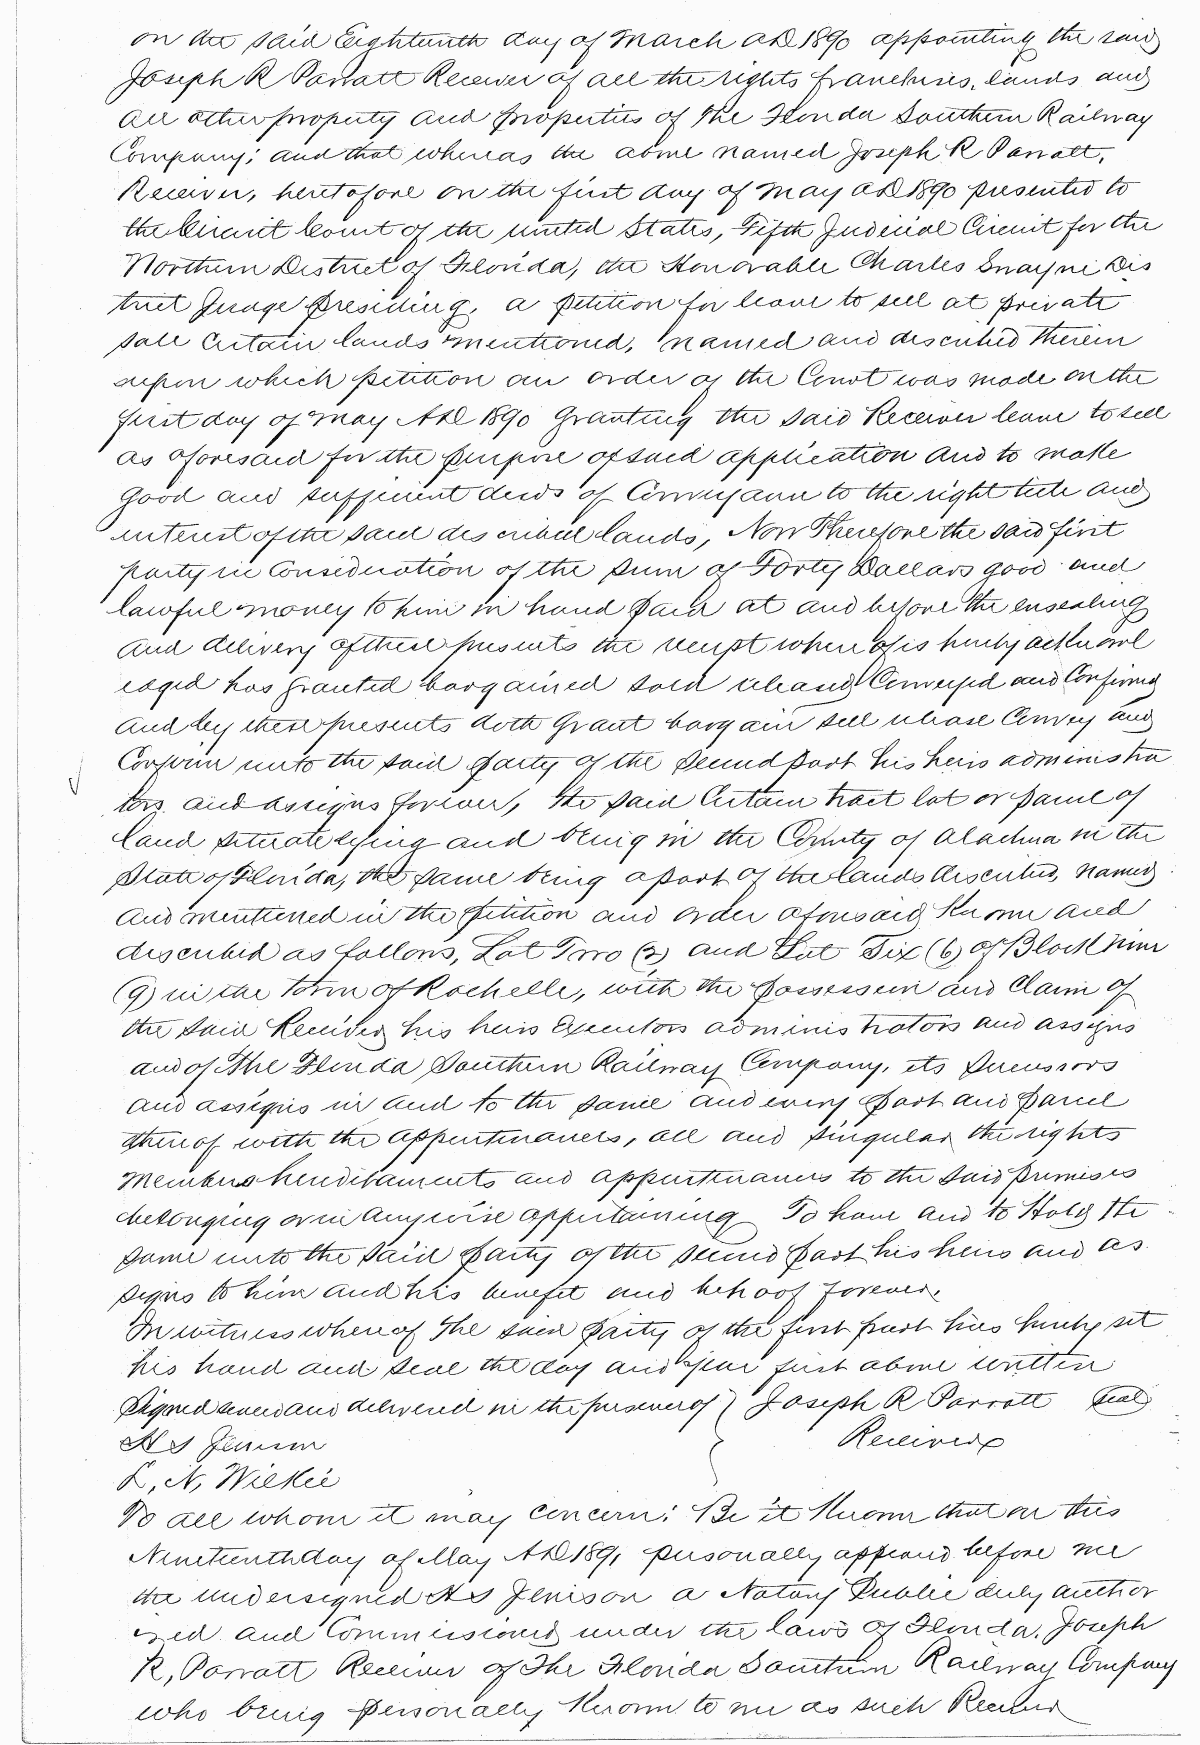 on the said Eighteenth day of March AD 1890 appointing the said
Joseph R Parratt Receiver of all the rights franchises, lands and
all other property and properties of The Florida Southern Railway
Company; and that whereas the above named Joseph R Parratt,
Receiver, heretofore on the first day of May AD 1890 presented to
the Circuit Court of the United States, Fifth Judicial Circuit for the
Northern District of Florida, the Honorable Charles Swayne Dis
trict Judge presiding, a petition for leave to sell at private
sale certain lands mentioned, named and described therein
upon which petition an order of the Court was made on the
first day of May AD 1890 Granting the said Receiver leave to sell
as aforesaid for the purpose of said application and to make
good and sufficient deeds of Conveyance to the right title and
interest of the said described lands, Now Therefore the said first
party in consideration of the sum of Forty Dollars good and
lawful money to him in hand paid at and before the ensealing
and delivery of these presents the receipt where of is hereby acknowl
edged has granted bargained sold released Conveyed and Confirmed
and by these presents doth Grant bargain sell release Convey and
Confirm unto the said party of the second part his heirs administra
tors and assigns forever, the said Certain tract lot or parcel of
land situate lying and being in the County of Alachua in the
State of Florida, the same being a part of the lands described, named
and mentioned in the petition and order aforesaid Known and
described as follows, Lot Two (2) and Lot Six (6) of Block nine
(9) in the Town of Rochelle, with the possession and Claim of
the said Receiver his heirs Executors administrators and assigns
and of The Florida Southern Railway Company, its successors
and assigns in and to the same and every part and parcel
thereof with the appurtenances, all and singular the rights
members hereditaments and appurtenances to the said premises
belonging or in anywise appertaining To have and to Hold the
same unto the said party of the second part his heirs and as
signs to him and his benefit and behoof forever.
In witness whereof The said party of the first part has hereby set
his hand and seal the day and year first above written
Signed sealed and delivered in the presence of } Joseph R Parratt Seal
H S Jenison Receiver
L, N, Wilkie
To all whom it may concern: Be it Known that on this
Nineteenth day of May AD 1891 personally appeared before me
the undersigned H S Jenison a Notary Public duly author
ized and Commissioned under the laws of Florida, Joseph
R, Parratt Receiver of The Florida Southern Railway Company
who being personally Known to me as such Receiver